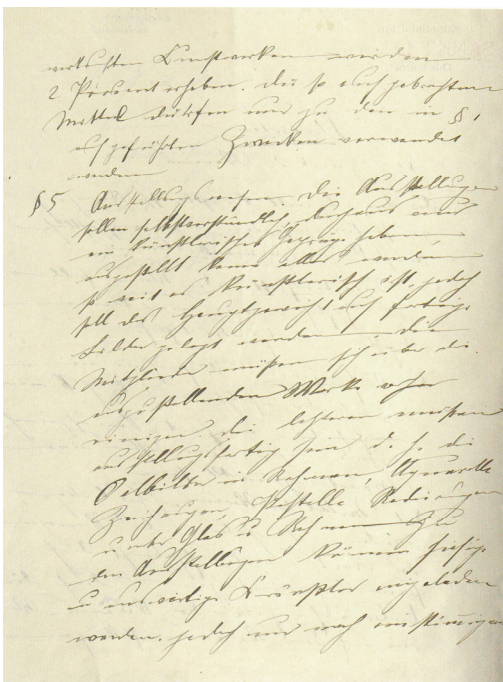 verkauften Kunstwerken werden
2 Prozent erhoben. Die so aufgebrachten
Mittel dürfen nur zu den in § 1
aufgeführten Zwecken verwendet
werden
§ 5 Ausstellungswesen. Die Ausstellungen
sollen selbstverständlich durchaus nur
ein künstlerisches Gepräge haben,
ausgestellt kann alles werden
so weit es künstlerisch ist, jedoch
soll das Hauptgewicht auf fertige
Bilder gelegt werden die
Mitglieder müßen sich über die
auszustellenden Werke vorher
einigen die letzteren müssen
ausstellungsfertig sein d. h. die
Oelbilder in Rahmen, Aquarelle
Zeichnungen, Pastelle Radierungen
unter Glas u Rahmen Zu
den Ausstellungen können hiesige
u auswärtige Künstler eingeladen
werden. jedoch nur nach einstimmigen